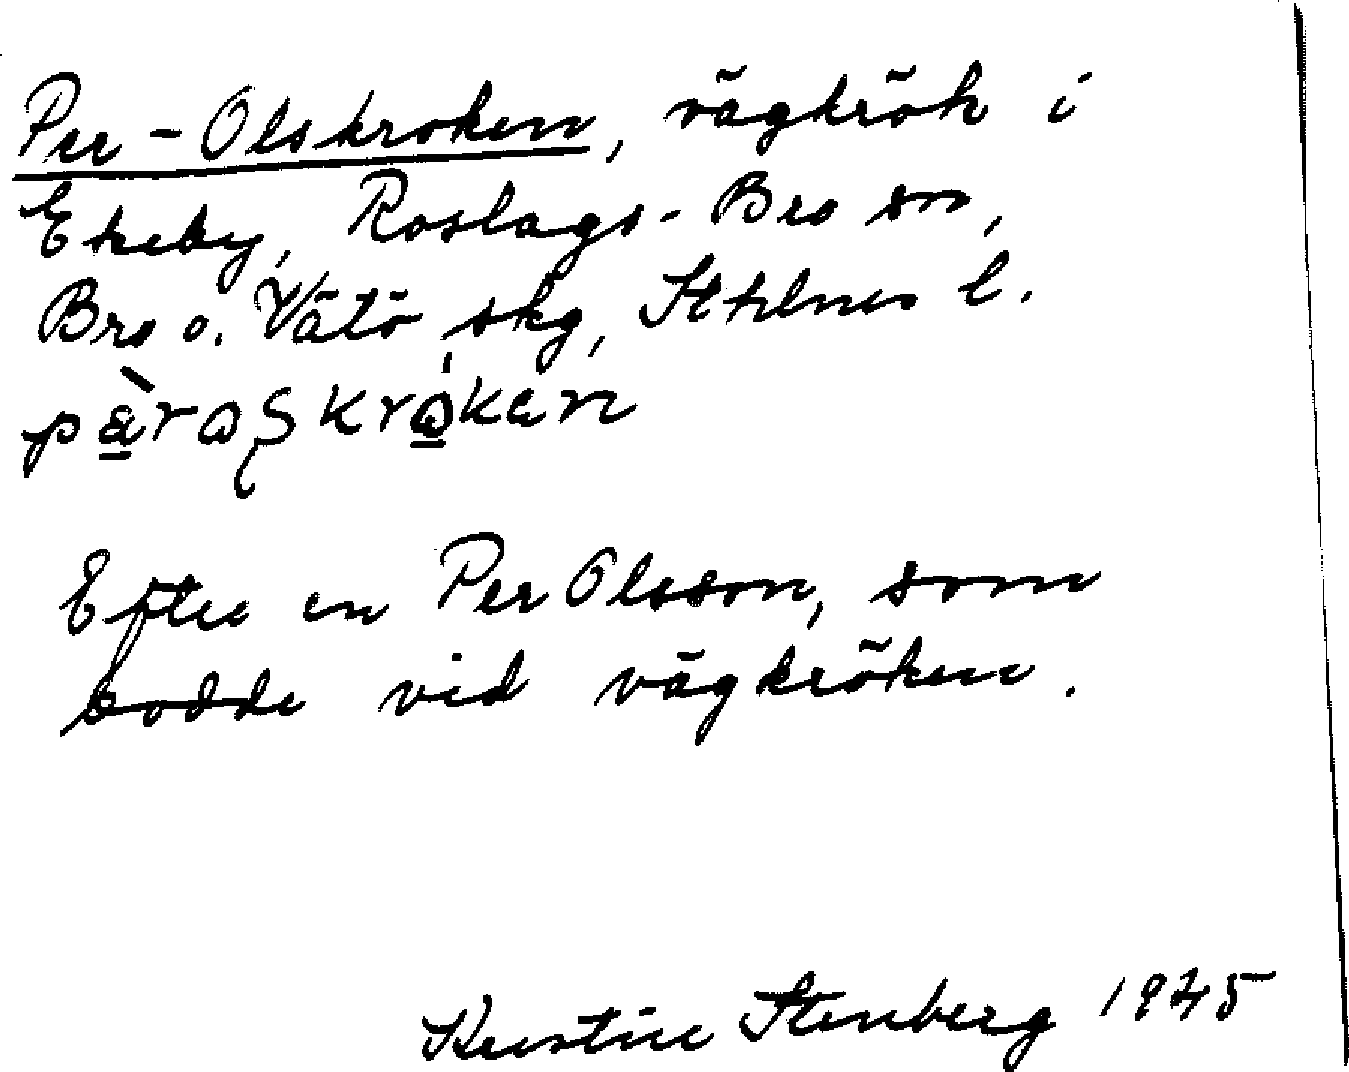 Per-Olskroken, vägkrök i
Ekeby, Roslags-Bro sn,
Bro o. Vätö skg, Sthlms l.
Efter en Per Olsson, som
bodde vid vägkröken.
Kerstin Stenberg 1945